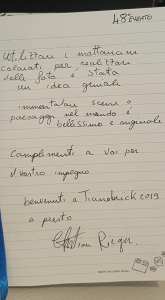 48 EVENTO
Utilizzare i mattoncini
colorati, per realizzare
delle foto è stata
un idea geniale
immortalare scene e
paesaggi nel mondo è
bellissimo e originale
Complimenti a voi per
il vostro impegno
benvenuti a Transbrick 2019
a presto
Christian Rieger.